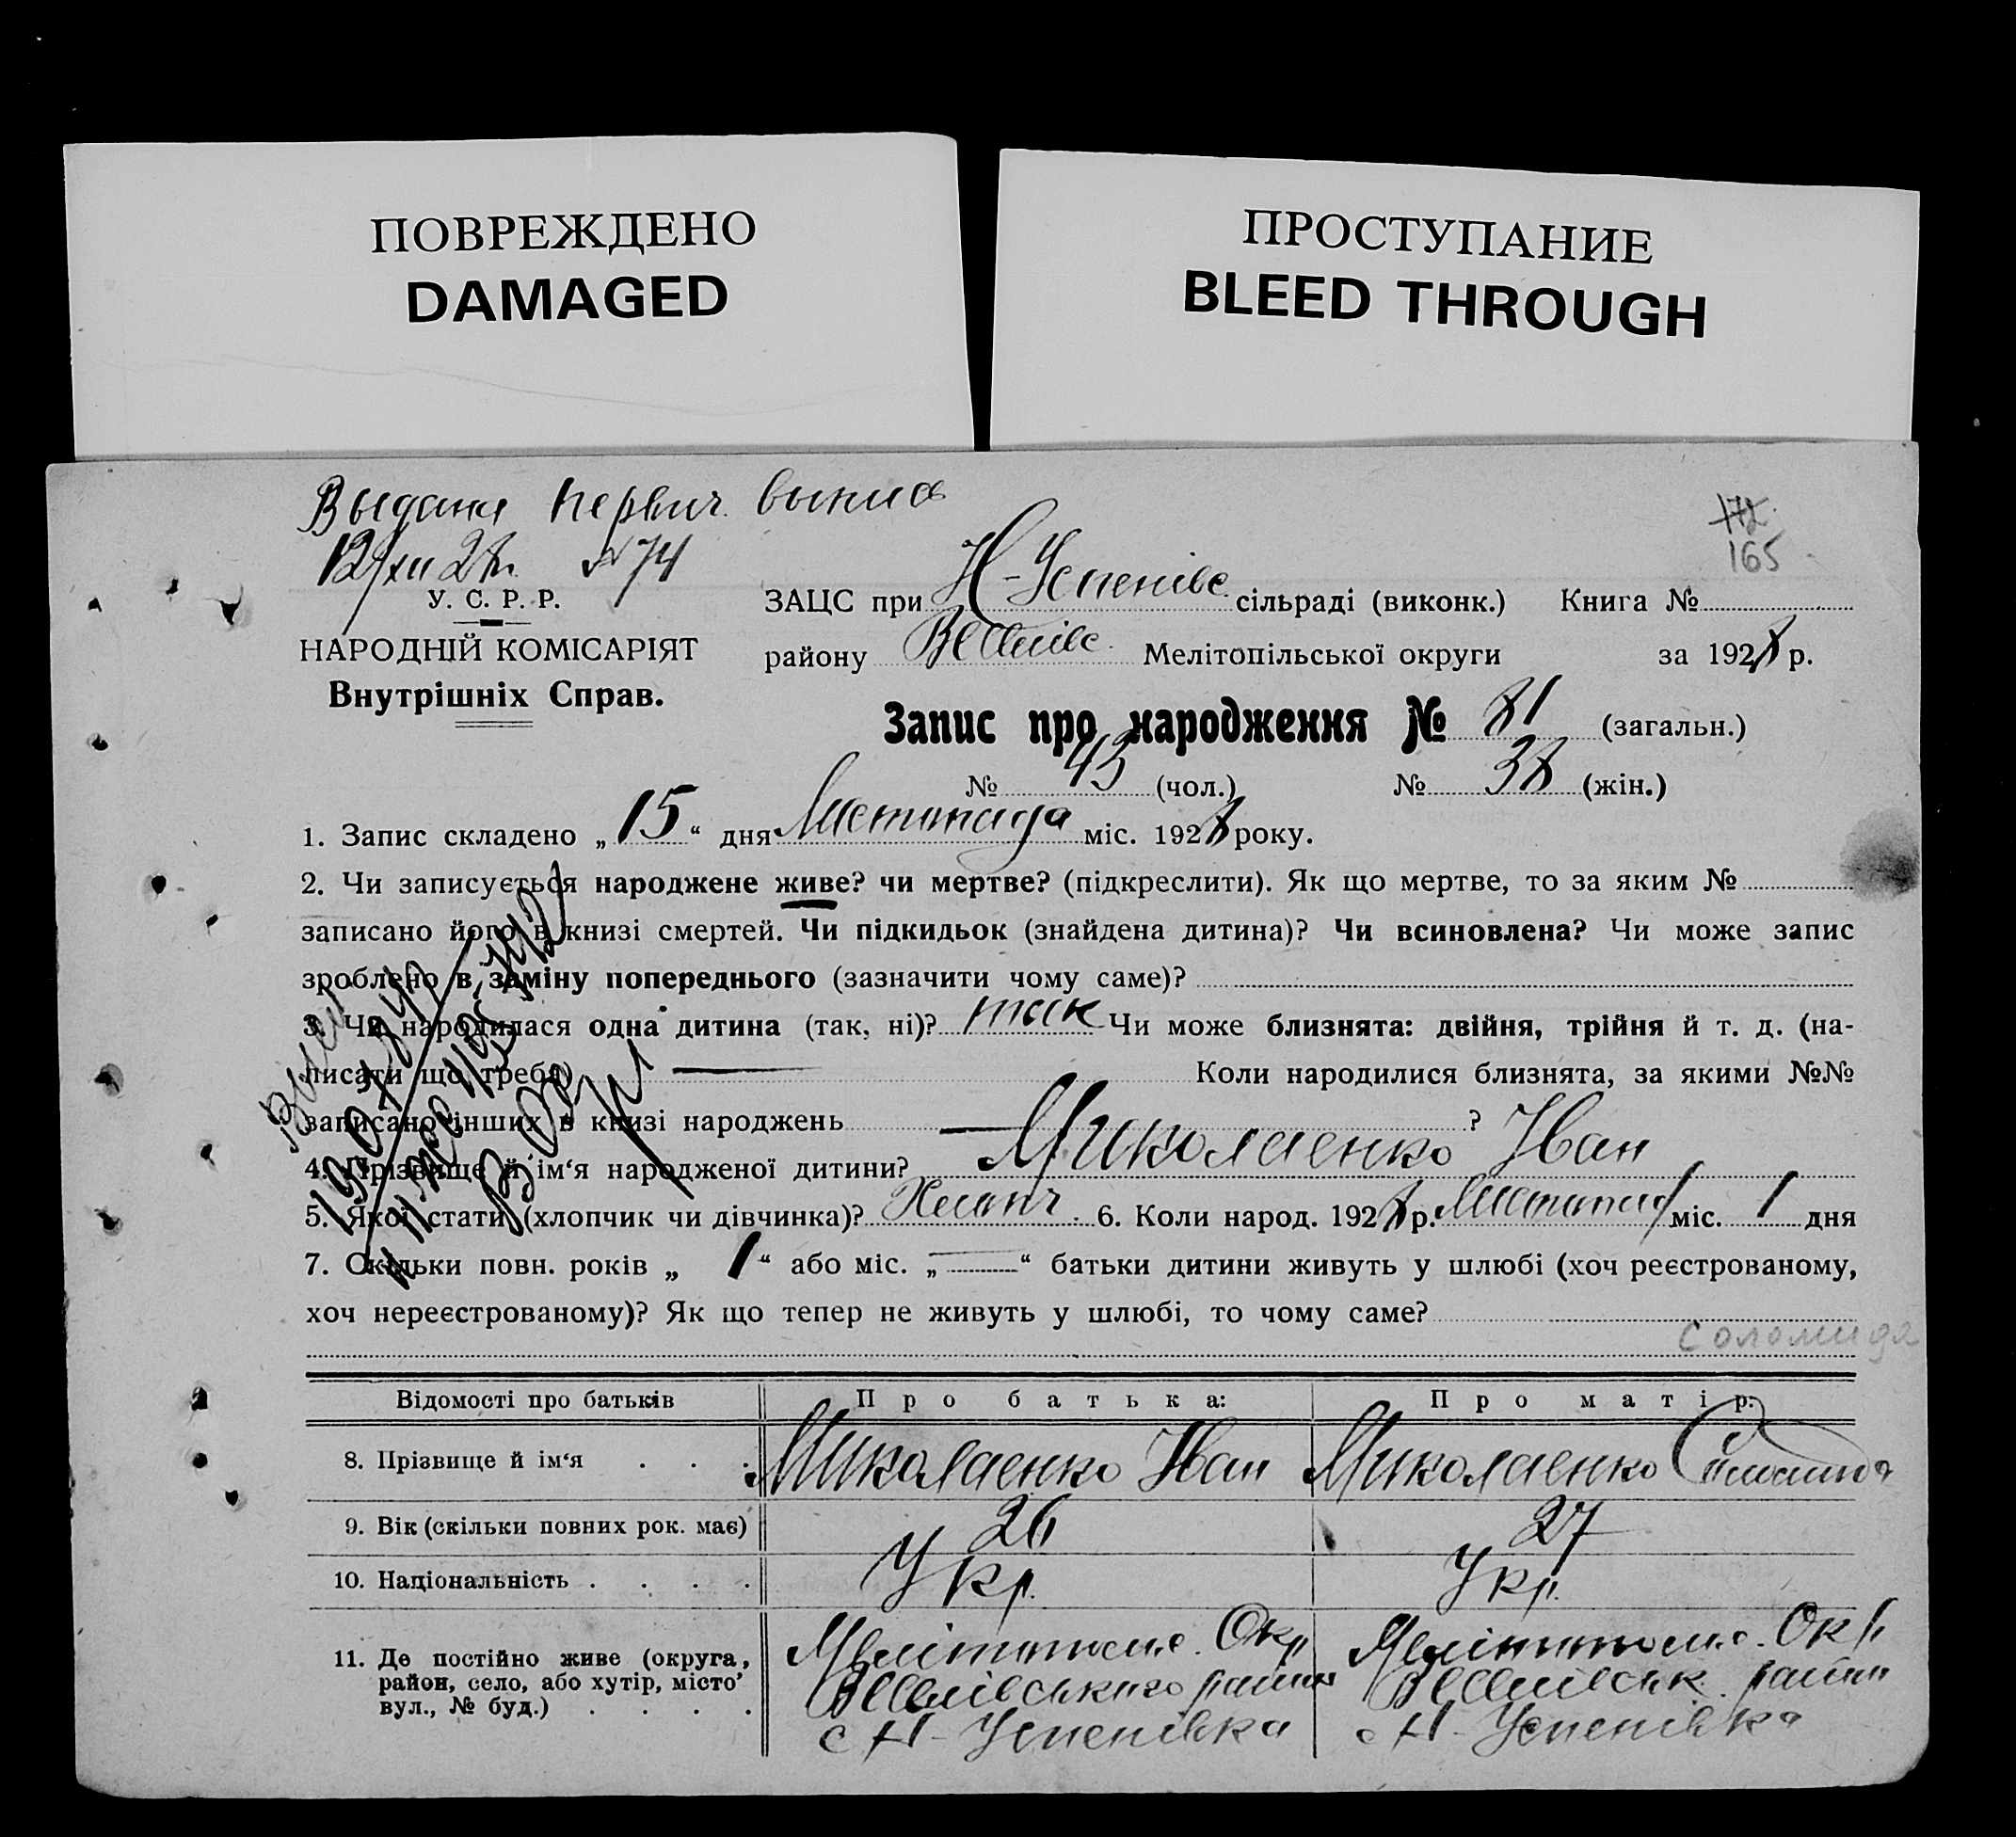 ПОВРЕЖДЕНО
DAMAGED
ПРОСТУПАНИЕ
BLEED THROUGH
Выдана первич. выпис
172.
165
12/XII 28г. №74
У. С. Р. Р.
НАРОДНІЙ КОМІСАРІЯТ
Внутрішніх Справ.
ЗАЦС при Н-Успенівс. сільраді (виконк.) Книга №
району Веселівс. Мелітопільської округи за 1928 р.
Запис про народження № 81 (загальн.)
№ 43 (чол.) № 38 (жін.)
1. Запис складено „15“ дня Листопада міс. 1928 року.
2. Чи записується народжене живе? чи мертве? (підкреслити). Як що мертве, то за яким №
записано його в книзі смертей. Чи підкидьок (знайдена дитина)? Чи всиновлена? Чи може запис
зроблено в заміну попереднього (зазначити чому саме)?
3. Чи народилася одна дитина (так, ні)? так Чи може близнята: двійня, трійня й т. д. (на-
писати що треба) — Коли народилися близнята, за якими №№
записано інших в книзі народжень — ?
4. Прізвище й ім‘я народженої дитини? Миколаенко Іван
5. Якої стати (хлопчик чи дівчинка)? Хлопч. 6. Коли народ. 1928 р. Листопад міс. 1 дня
7. Скільки повн. років „1“ або міс. „—“ батьки дитини живуть у шлюбі (хоч реєстрованому,
хоч нереєстрованому)? Як що тепер не живуть у шлюбі, то чому саме?
Соломида
Відомості про батьків Про батька: Про матір:
8. Прізвище й ім‘я . . . Миколаенко Іван Миколаенко
9. Вік (скільки повних рок. має) 26 27
10. Національність . . . . Укр. Укр.
11. Де постійно живе (округа,
район, село, або хутір, місто
вул., № буд.) . . . .
Мелітопольс. Окр
Веселівського району
с Н-Успенівка
Мелітопольс. Окр
Веселівськ. район
с Н-Успенівка